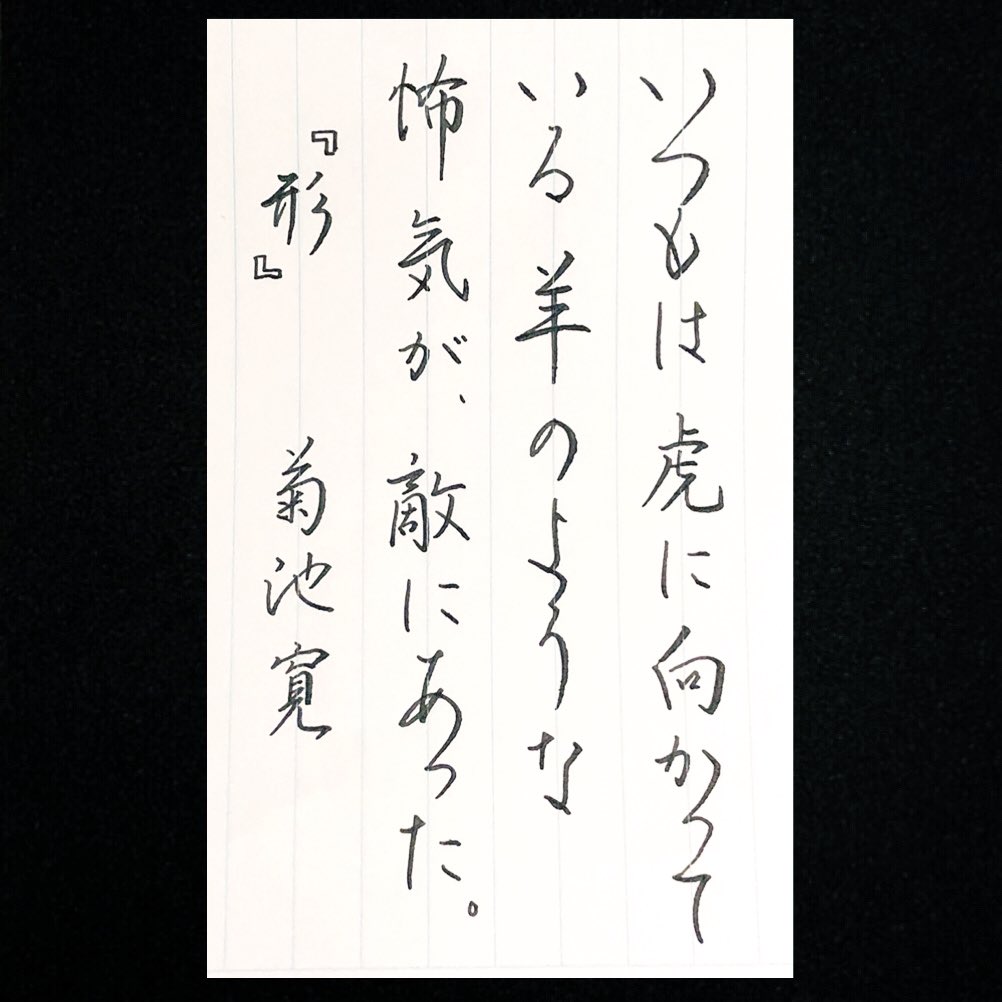 いつもは虎に向かって
いる羊のような
怖気が、敵にあった。
『形』 菊池寛